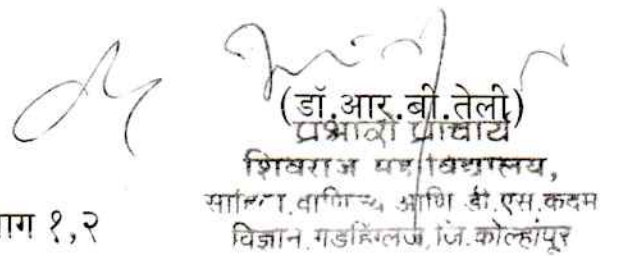 (डॉ.आर.बी.तेली)
प्रभारी प्राचार्य
शिवराज महाविद्यालय,
वाणिज्य आणि डी.एस.कदम
विज्ञान, गडहिंग्लज, जि. कोल्हापूर
१,२